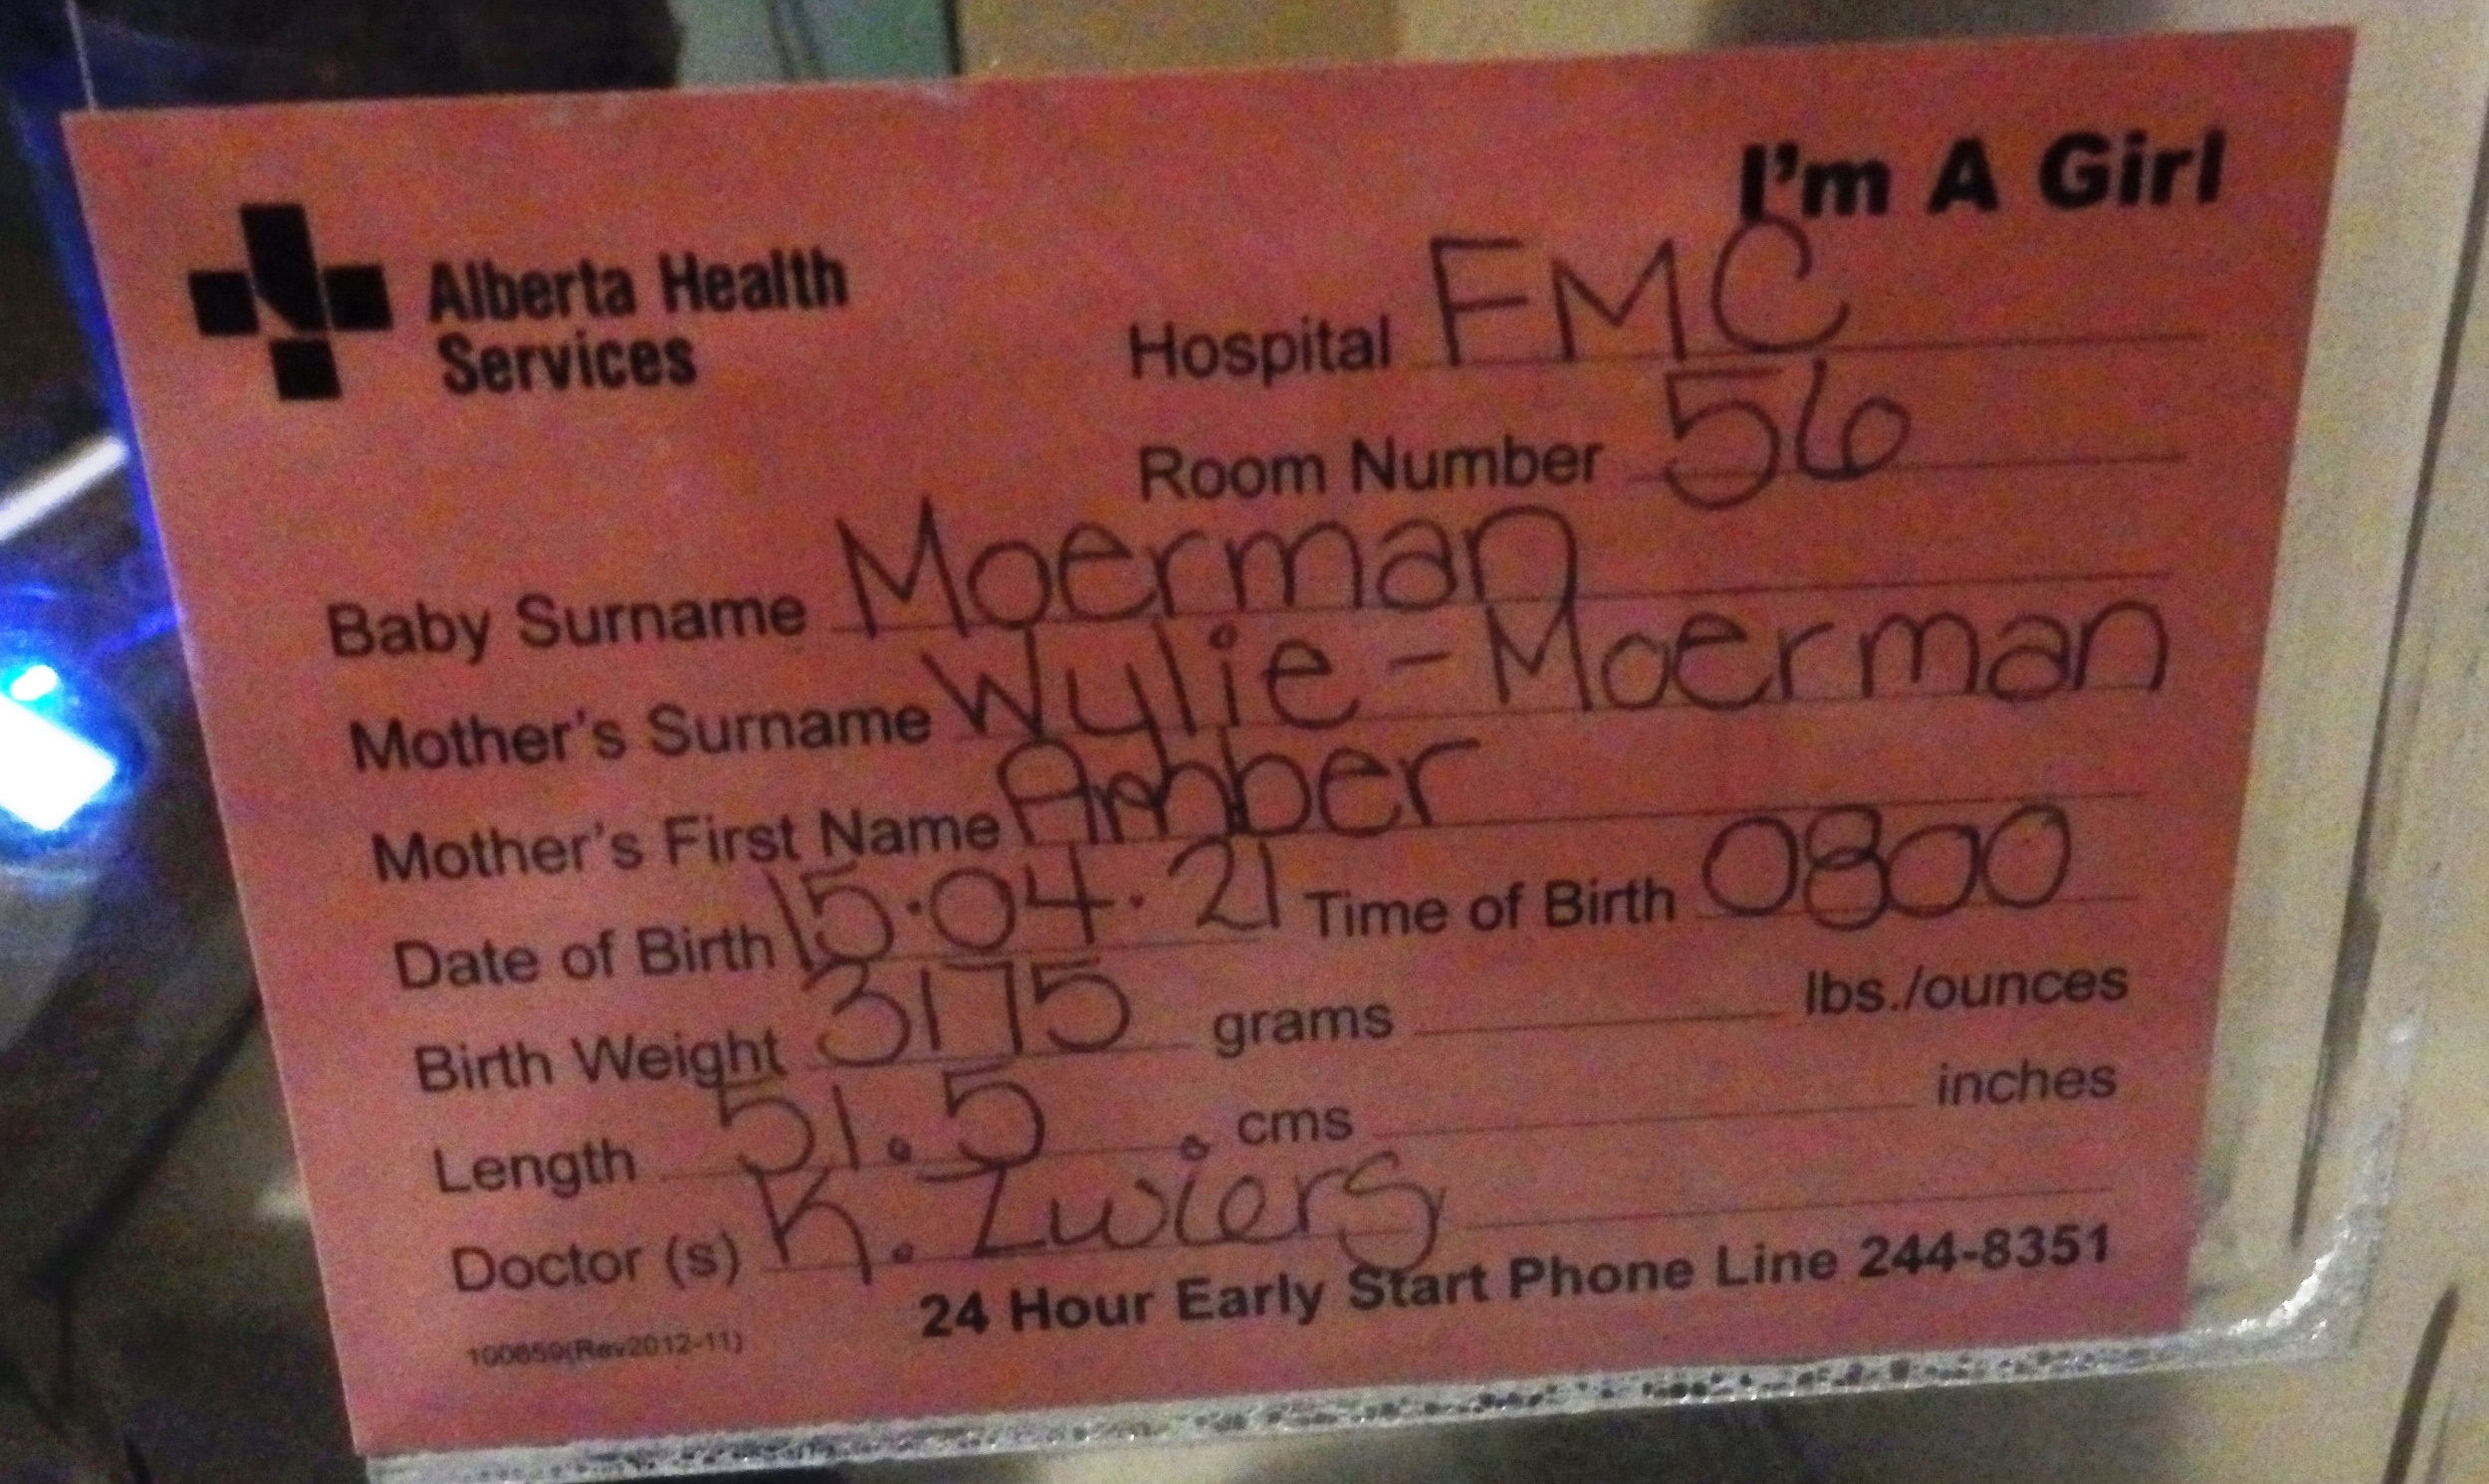 I'm A Girl
Alberta Health
Services
Hospital FMC
Room Number 56
Baby Surname Moerman
Mother's Surname Wylie-Moerman
Mother's First Name Amber
Date of Birth 15.04.21 Time of Birth 0800
Birth Weight 3175 grams lbs./ounces
Length 51.5 cms inches
Doctor (s) K. Zwiers
24 Hour Early Start Phone Line 244-8351
100659(Rev2012-11)